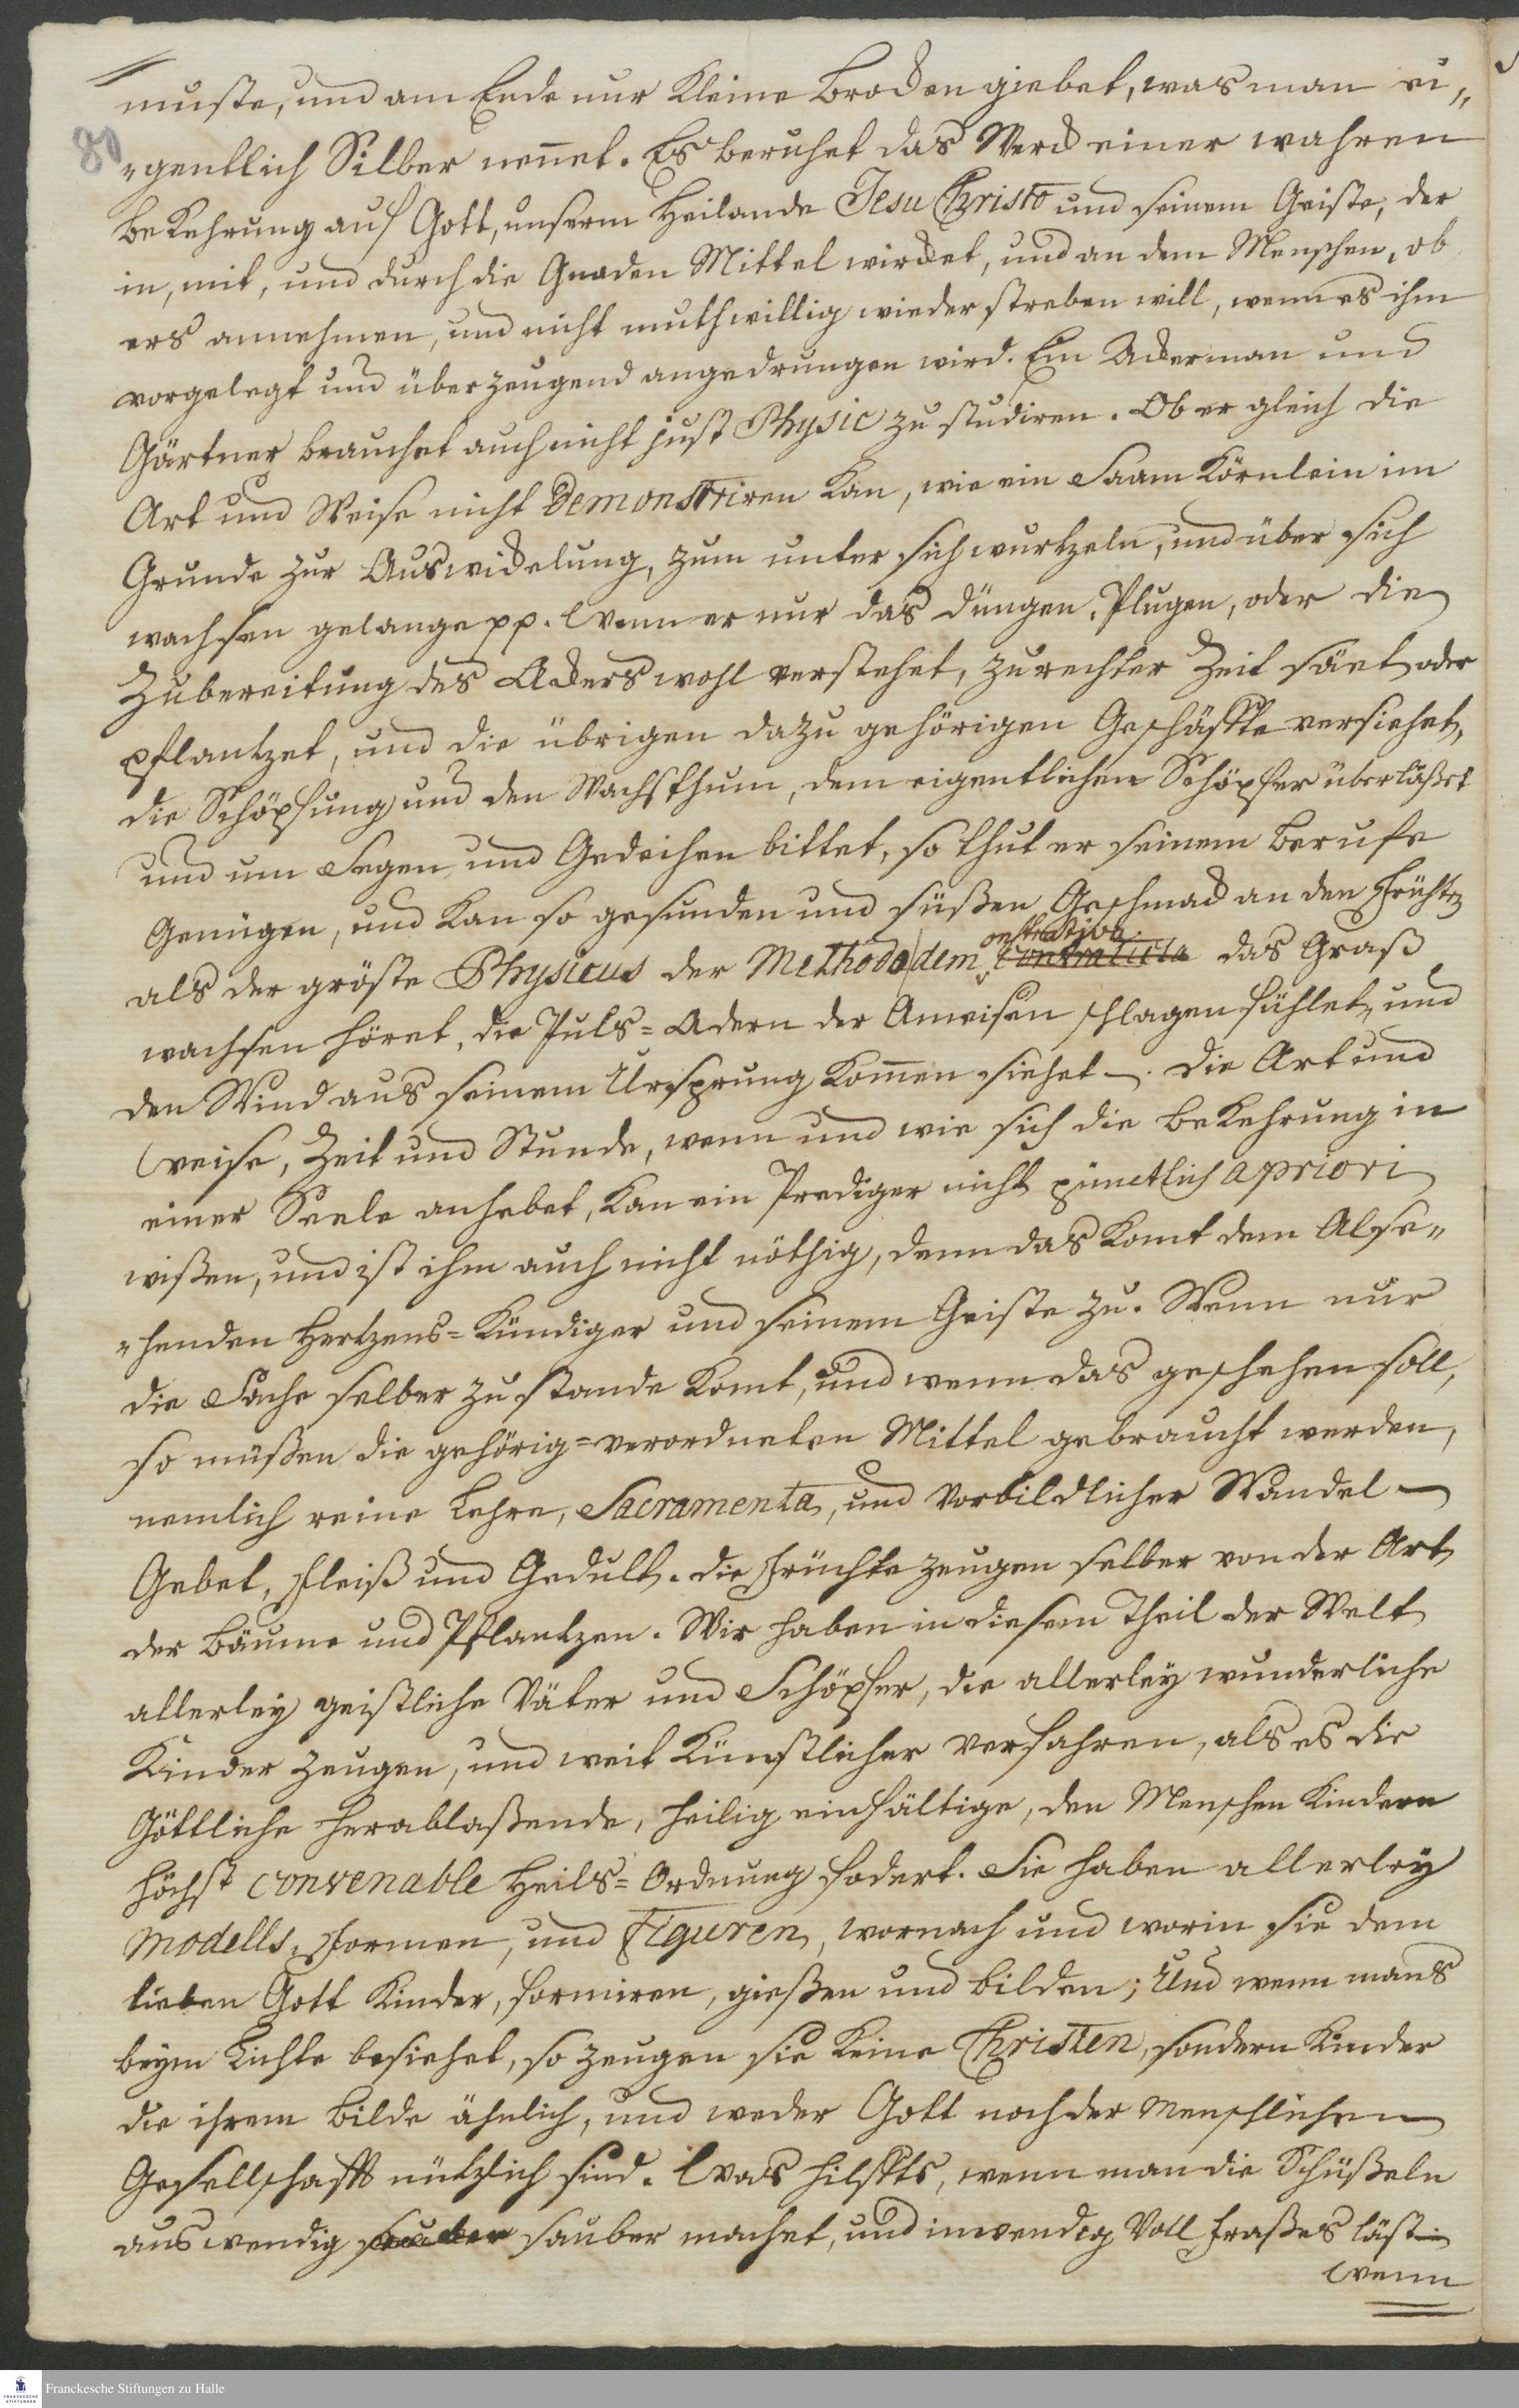 muste, und am Ende nur kleine Brocken giebet, was man ei„
80
„gentlich Silber nennet. Es beruhet das Werck einer wahren
Bekehrung auf Gott, unserm Heilande Jesu Christo und seinem Geiste, der
in, mit, und durch die Gnaden Mittel wircket, und an dem Menschen, ob
ers annehmen, und nicht muthwillig wiederstreben will, wenn es ihm
vorgelegt und überzeugend angedrungen wird. Ein Ackerman und
Gärtner brauchet auch nicht just Physic zu studiren. Ob er gleich die
Art und Weise nicht Demonstriren kan, wie ein Saam Körnlein im
Grunde zur Auswickelung, zum unter sich wurtzeln, und über sich
wachsen gelange pp. Wenn er nur das düngen, Plugen, oder die
Zubereitung des Ackers wohl verstehet, zu rechter Zeit säet oder
pflantzet, und die übrigen dazu gehörigen Geschäffte versiehet,
die Schöpfung und den Wachsthum, dem eigentlichen Schöpfer überläßet
und um Segen und Gedeihen bittet, so thut er seinem Berufe
Genügen, und kan so gesunden und süßen Geschmack an den Früchten
onstrativa
als der gröste Physicus der Methodo dem contraticta das Graß
wachsen höret, die Puls=Adern der Ameisen schlagen fühlet, und
den Wind aus seinem Ursprung kommen siehet —. Die Art und
Weise, Zeit und Stunde, wenn und wie sich die Bekehrung in
einer Seele anhebet, kan ein Prediger nicht pünctlich a priori
wißen, und ist ihm auch nicht nöthig, denn das komt dem Allse„
„henden Hertzens=Kündiger und seinem Geiste zu. Wenn nur
die Sache selber zu stande komt, und wenn das geschehen soll,
so müßen die gehörig=verordneten Mittel gebraucht werden,
nemlich reine Lehre, Sacramenta, und Vorbildlicher Wandel —
Gebet, Fleiß und Gedult. Die Früchte zeugen selber von der Art
der Bäume und Pflantzen. Wir haben in diesem Theil der Welt
allerley geistliche Väter und Schöpfer, die allerley wunderliche
Kinder zeugen, und weit künstlicher verfahren, als es die
Göttliche herablaßende, heilig einfältige, den Menschen Kindern
höchst convenable Heils=Ordnung fodert. Sie haben allerley
Modells, Formen, und Figuren, wornach und worin sie dem
lieben Gott Kinder, formiren, gießen und bilden; Und wenn mans
beym Lichte besiehet, so zeugen sie keine Christen, sondern Kinder
die ihrem Bilde ähnlich, und weder Gott noch der Menschlichen
Gesellschafft nützlich sind. Was hilffts, wenn man die Schüßeln
auswendig sauber machet, und inwendig voll Fraßes läst —
wenn
Franckesche Stiftungen zu Halle